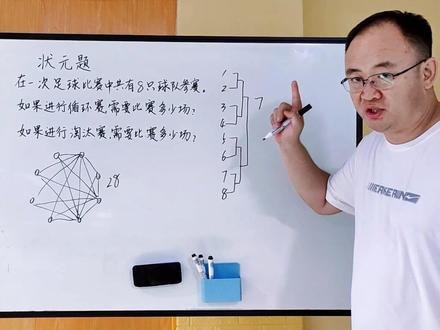 状元题
在一次足球比赛中共有8只球队参赛。
如果进行循环赛,需要比赛多少场?
如果进行淘汰赛,需要比赛多少场?
28
1
2
3
4
5
6
7
8
7